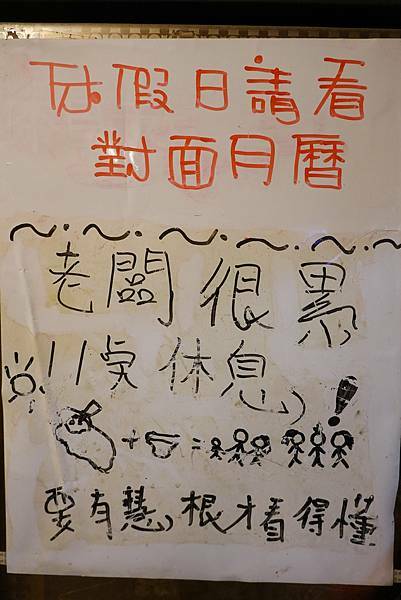 假日請看
對面月曆
老闆很累
11奌休息
+ = !
要有慧根才看得懂